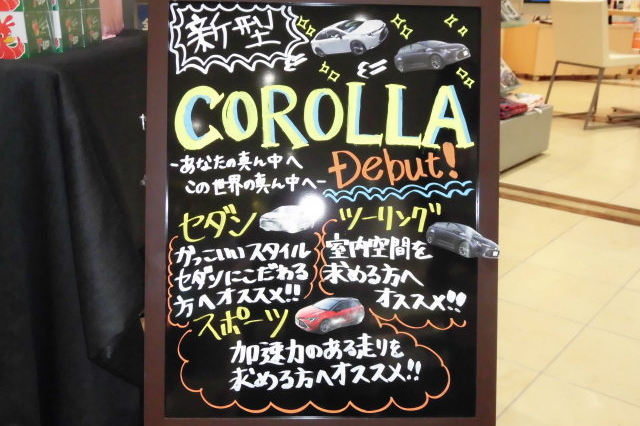 新型
COROLLA
-あなたの真ん中へ
この世界の真ん中へ-
Debut!
セダン
かっこいいスタイル
セダンにこだわる
方へオススメ!!
ツーリング
室内空間を
求める方へ
オススメ!!
スポーツ
加速力のある走りを
求める方へオススメ!!